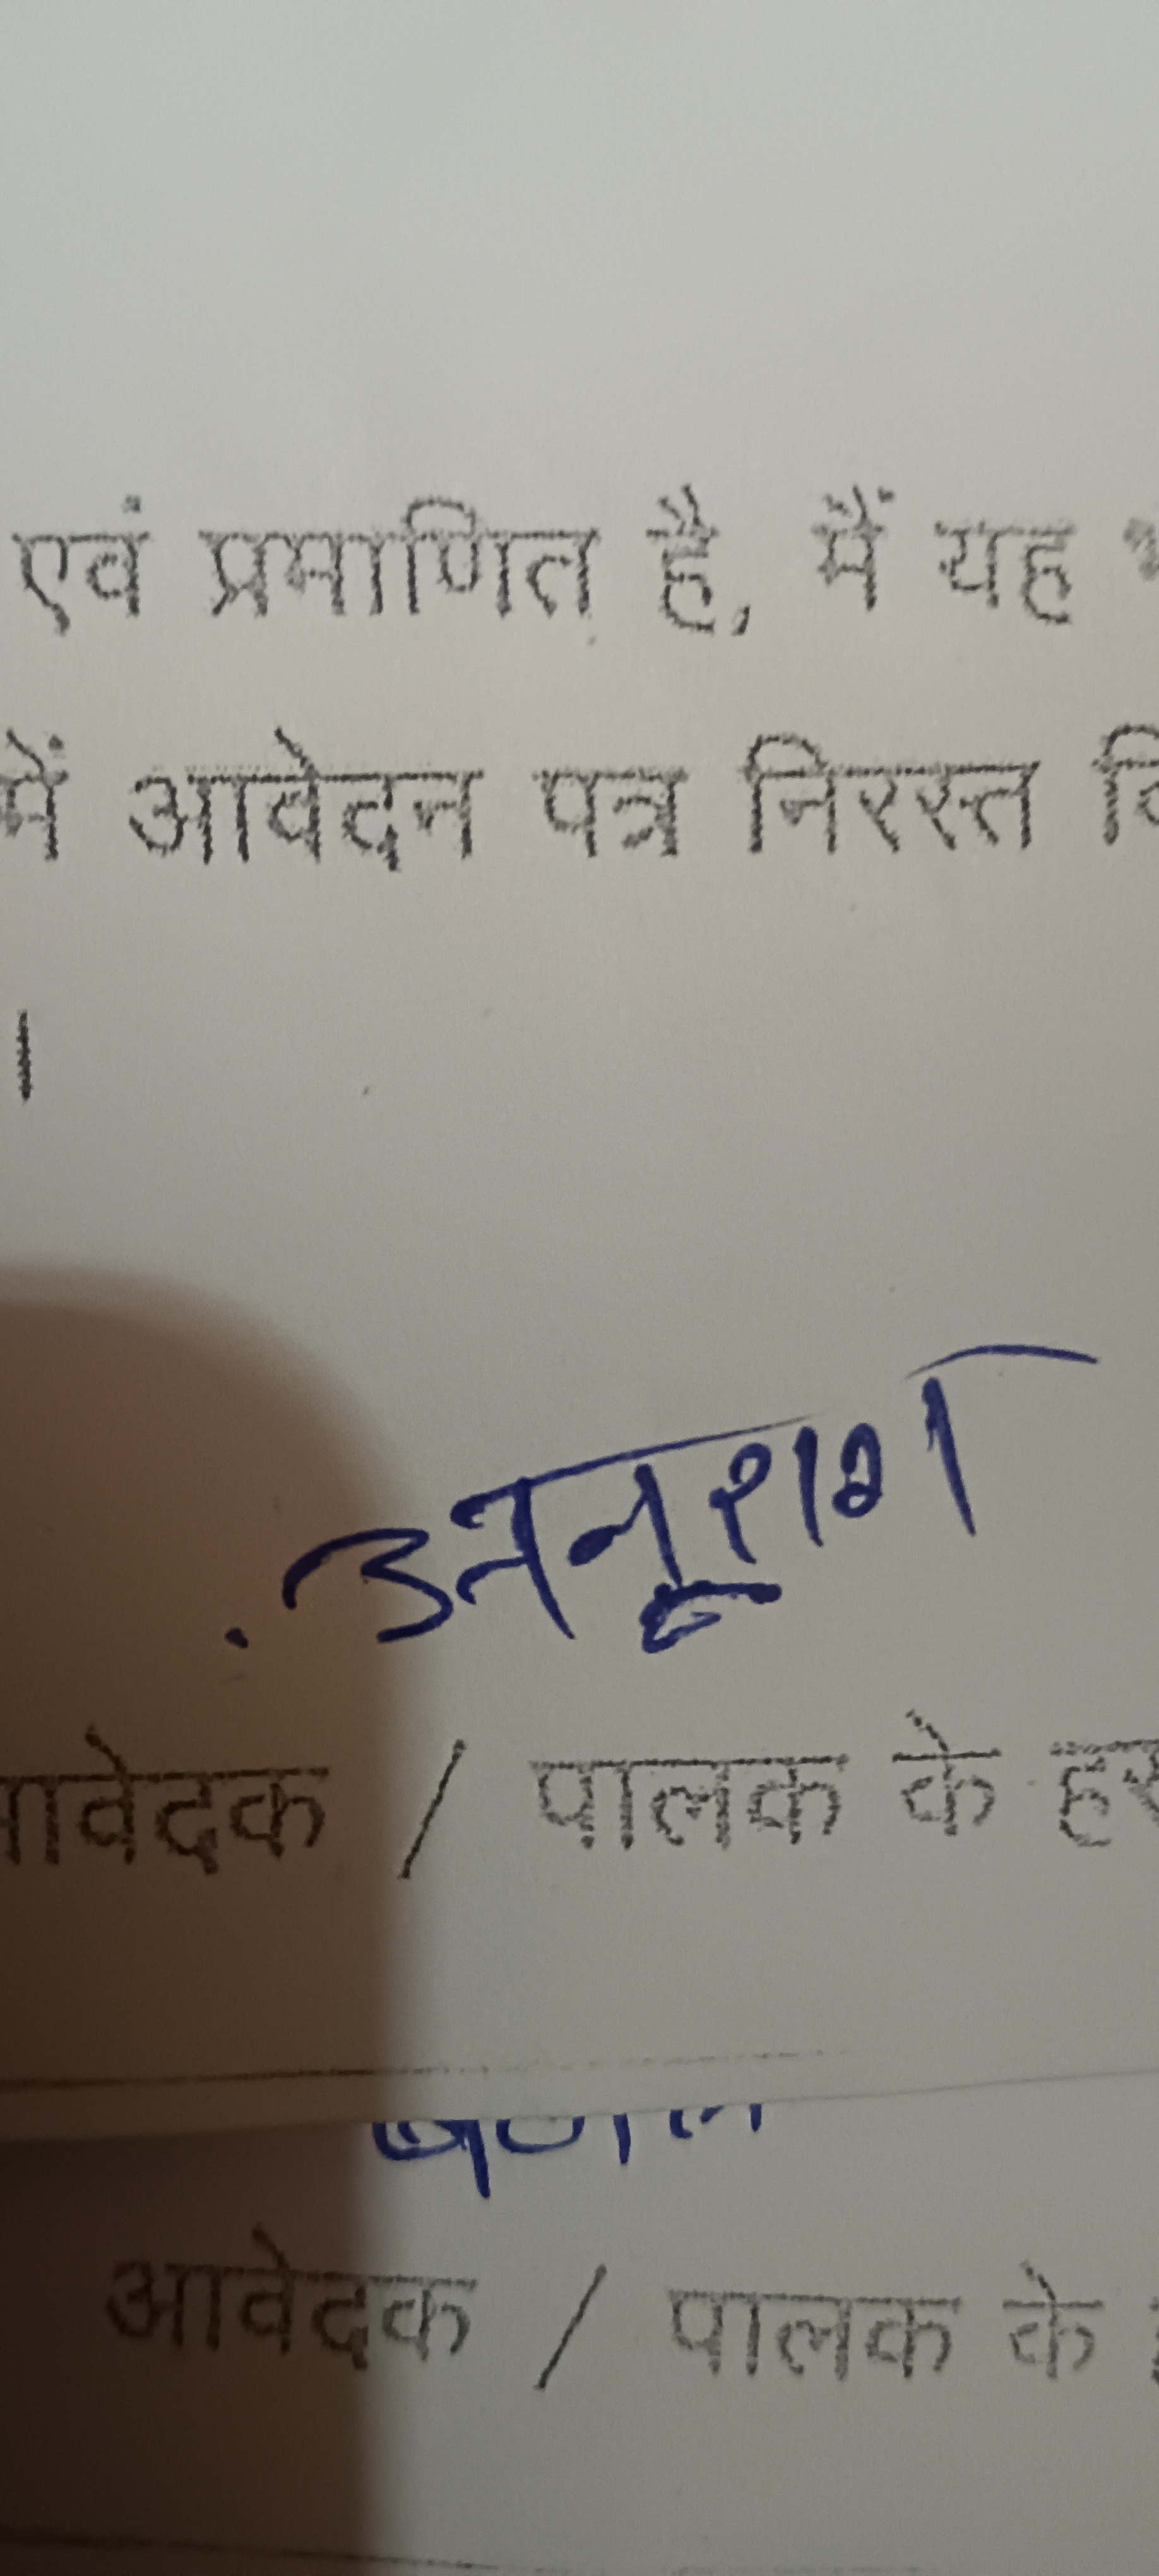 एवं प्रमाणित है, मैं यह
में आवेदन पत्र निरस्त
।
आवेदक / पालक के
आवेदक / पालक के